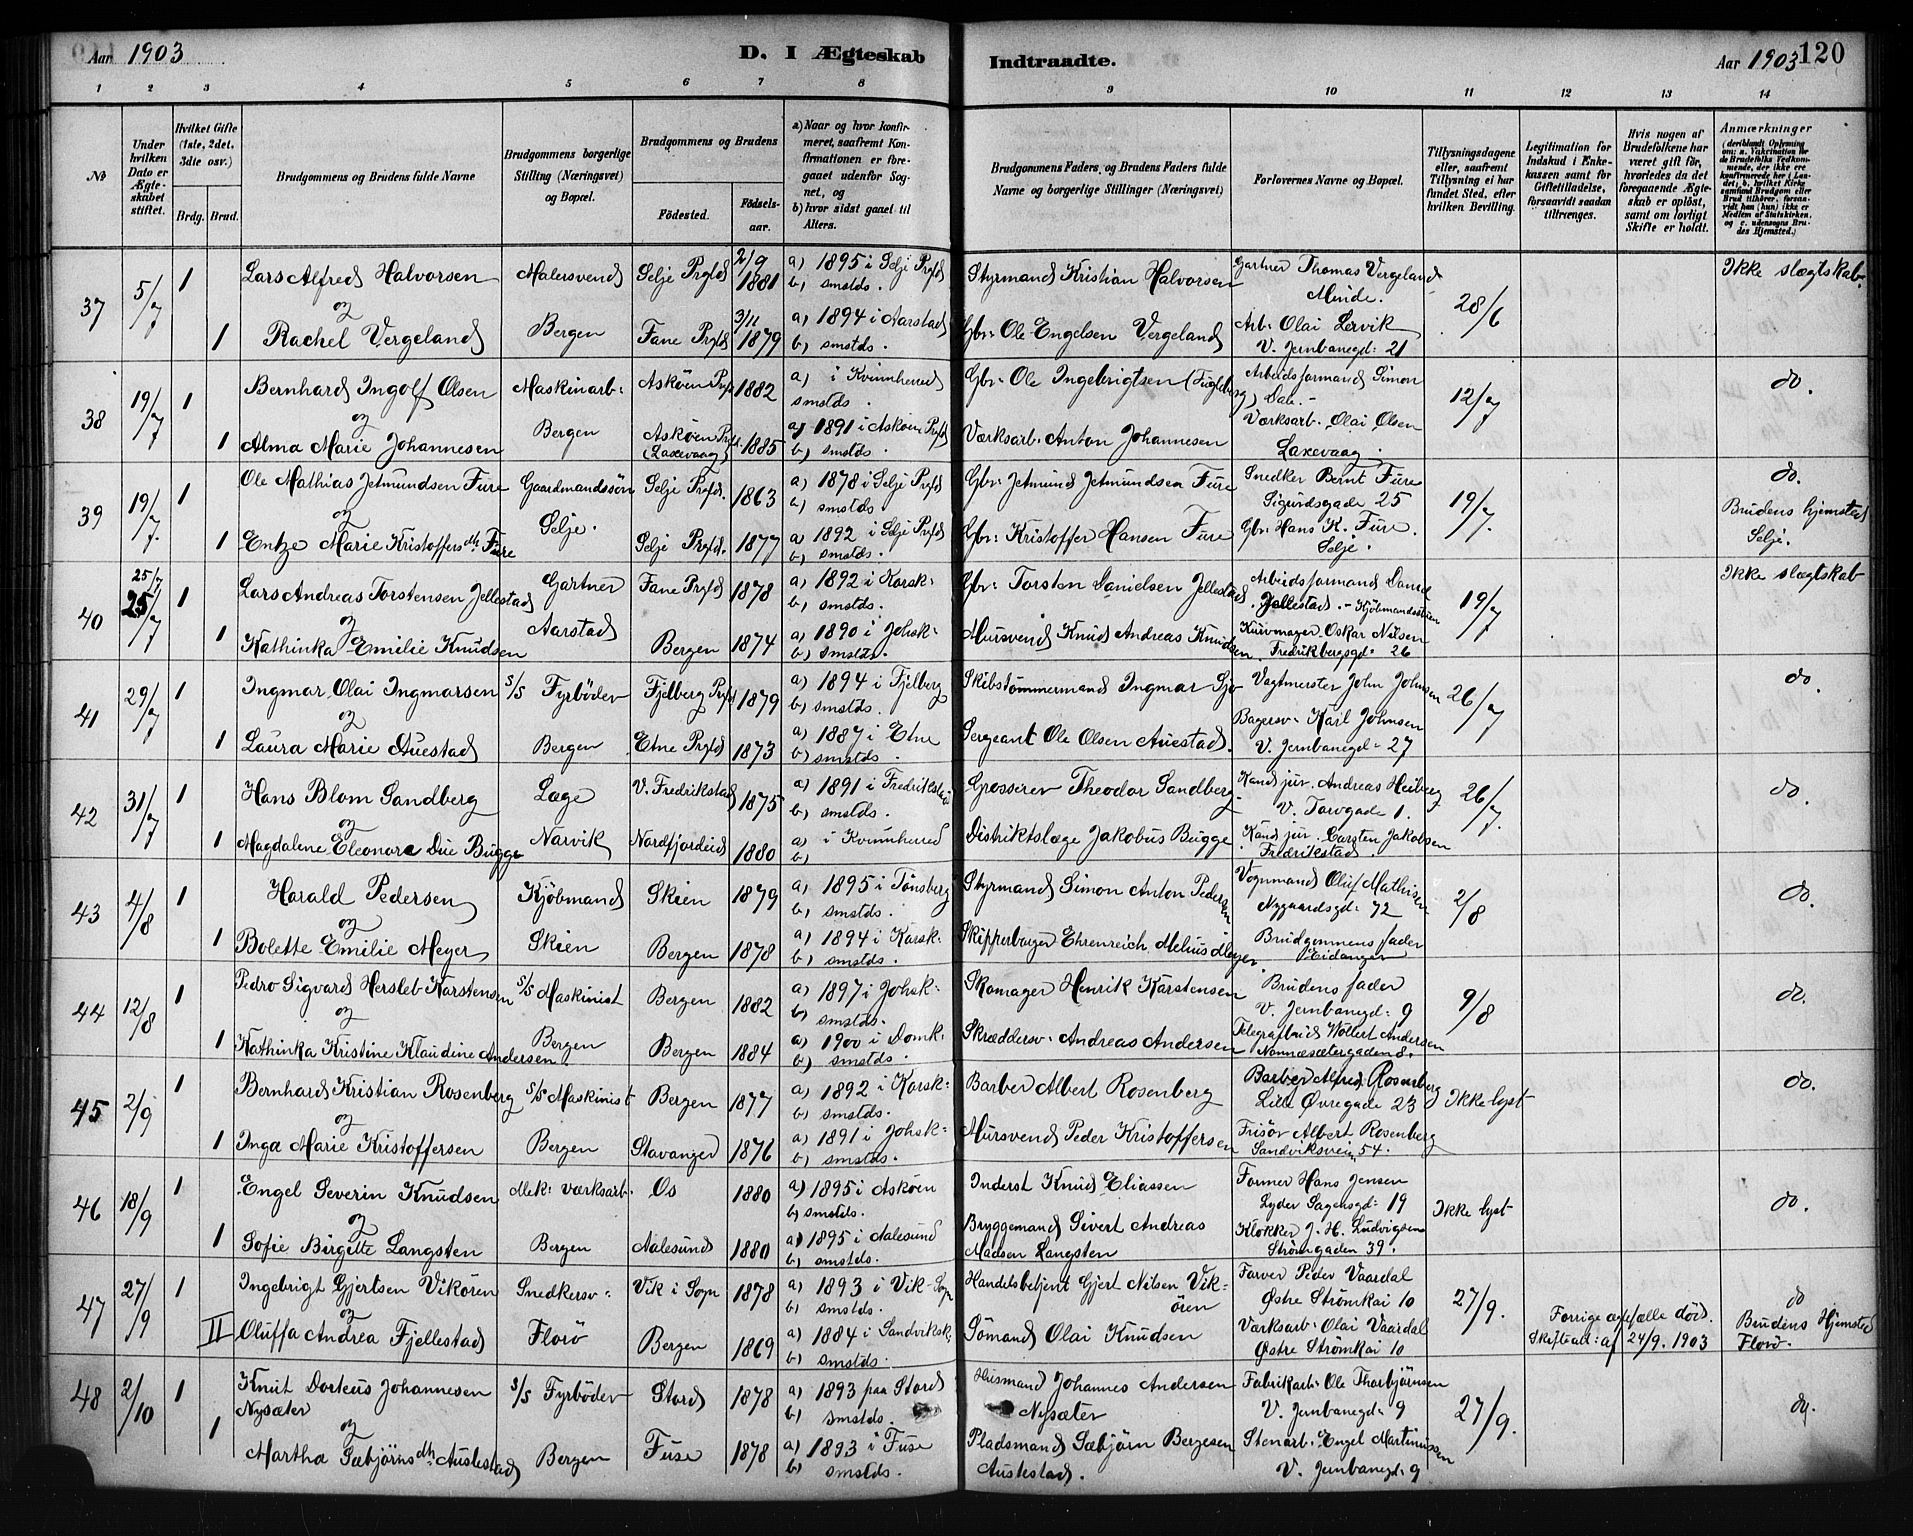 Aar 1903
D. I Ægteskab Indtraadte.
Aar 1903 120
1 2 3 4 5 6 7 8 9 10 11 12 13 14
No
Under hvilken Dato er Ægteskabet stiftet.
Hvilket Gifte (1ste, 2det, 3die osv.)
Brdg. Brud.
Brudgommens og Brudens fulde Navne
Brudgommens borgerlige Stilling (Næringsvei) og Bopæl.
Brudgommens og Brudens
Fødested. Fødselsaar.
a) Naar og hvor konfirmeret, saafremt Konfirmationen er foregaaet udenfor Sognet, og
b) hvor sidst gaaet til Alters.
Brudgommens Faders og Brudens Faders fulde Navne og borgerlige Stillinger (Næringsvei)
Forlovernes Navne og Bopæl.
Tillysningsdagene eller, saafremt Tillysning ei har fundet Sted, efter hvilken Bevilling.
Legitimation for Indskud i Enkekassen samt for Giftetilladelse, forsaavidt saadan tiltrænges.
Hvis nogen af Brudefolkene har været gift før, hvorledes da det foregaaende Ægteskab er opløst, samt om lovligt Skifte er holdt.
Anmærkninger (deriblandt Oplysning om: a. Vakcination for de Brudefolks Vedkommende, der ikke ere konfirmerede her i Landet; b. hvilket Kirkesamfund Brudgom eller Brud tilhører, forsaavidt han (hun) ikke er Medlem af Statskirken, og c. udensogns Brudes Hjemsted.)
37 5/7 1 Lars Alfred Halvorsen Malersvend Selje Prgld 2/9 1881 a) 1895 i Selje Prgld b) smstds. Styrmand Kristian Halvorsen Gartner Thomas Vergeland Minde. 28/6 Ikke slægtskab.
og
1 Rachel Vergeland Bergen Fane Prgld 3/11 1879 a) 1894 i Aarstad b) smstds. Gbr: Ole Engelsen Vergeland Arb: Olai Lervik V. Jernbanegd: 21
38 19/7 1 Bernhard Ingolf Olsen Maskinarb: Askøen Prgld 1882 a) i Kvinnherred smstds. Gbr: Ole Ingebrigtsen (Fugleberg) Arbeidsformand Simon Dale.- 12/7 do.
og
1 Alma Marie Johannesen Bergen Askøen Prgld. (Laxevaag) 1885 a) 1891 i Askøen Prgld b) smstds. Værksarb: Anton Johannesen Værksarb. Olai Olsen Laxevaag.
39 19/7. 1 Ole Mathias Jetmundsen Fure Gaardmandssøn Selje Prgld. 1863 a) 1878 i Selje Prgld b) smstds Gbr: Jetmund Jetmundsen Fure Snedker Bernt Fure Sigurdsgade 25 19/7. do.
og
1 Entze Marie Kristoffersdtr Fure Selje. Selje Prgld. 1877 a 1892 i Selje Prgld b) smstds. Gbr: Kristoffer Hansen Fure Gbr: Hans K. Fure. Selje. Brudens hjemsted Selje.
40 25/7 25/7 1 Lars Andreas Torstensen Jellestad Gartner Fane Prgld 1878 a) 1892 i Korsk: b) smstds. Gbr: Torsten Danielsen Jellestad Arbeidsformand Daniel Jellestad.- Kjøbmandsstuen 19/7 Ikke slægtskab
og
1 Kathinka Emilie Knudsen Aarstad Bergen 1874 a) 1890 i Johsk: b) smstds. Mursvend Knud Andreas Knudsen Kurvmager Oskar Nilsen Fredrikbergsgd: 26
41 29/7 1 Ingmar Olai Ingmarsen S/S Fyrbøder Fjelberg Prgld 1879 a) 1894 i Fjelberg b) smstds. Skibstømmermand Ingmar Sjo Vagtmester John Johnsen 26/7 do.
og
1 Laura Marie Auestad Bergen Etne Prgld 1873 a) 1887 i Etne b) smstds. Sergeant Ole Olsen Auestad. Bagersv: Karl Johnsen V. Jernbanegd: 27
42 31/7 1 Hans Blom Sandberg Læge V. Fredrikstad 1875 a) 1891 i Fredrikstad b) smstds. Grosserer Theodor Sandberg Kand. jur. Andreas Heiberg V. Torvgade 1. 26/7. do.
og
1 Magdalene Eleonora Due Bugge Narvik Nordfjordeid 1880 a) i Kvinnherred b) Distriktslæge Jakobus Bugge Kand jur. Carsten Jakobsen Fredrikstad
43 4/8 1 Harald Pedersen Kjøbmand Skien 1879 a) 1895 i Tønsberg b) smstds. Styrmand Simon Anton Pedersen Vognmand Oluf Mathisen Nygaardsgd: 72 2/8 do.
og
1 Bolette Emilie Meyer Skien Bergen 1878 a) 1894 i Korsk: b) smstds. Skipperborger Ehrenreich Melius Meyer Brudgommens fader Eidanger
44 12/8 1 Pedro Sigvard Hersleb Karstensen S/S Maskinist Bergen 1882 a) 1897 i Johsk: b) smstds. Skomager Henrik Karstensen Brudens fader V. Jernbanegd: 9 9/8 do.
og
1 Kathinka Kristine Klaudine Andersen. Bergen Bergen 1884 a) 1900 i Domk: b) smstds. Skræddersv: Andreas Andersen Telegrafbud Wollert Andersen Nonnesætergaden 8.
45 2/9 1 Bernhard Kristian Rosenberg S/S Maskinist Bergen 1877 a) 1892 i Korsk: b) smstds. Barber Albert Rosenberg Barber Alfred Rosenberg Lille Øvregade 23 Ikke lyst do.
og
1 Inga Marie Kristoffersen Bergen Stavanger 1876 a) 1891 i Johsk: b) smstds. Mursvend Peder Kristoffersen Frisør Albert Rosenberg Sandviksvein 54.
46 18/9 1 Engel Severin Knudsen Mek: værksarb: Os 1880 a) 1895 i Askøen b) smstds. Inderst Knud Eliassen Former Hans Jensen Lyder Sagensgd: 19 Ikke lyst do.
og
1 Sofie Birgitte Langsten Bergen Aalesund 1880 a) 1895 i Aalesund b) smstds. Bryggemand Sivert Andreas Madsen Langsten Klokker J. H. Ludvigsen Strømgaden 39.
47 27/9 1 Ingebrigt Gjertsen Vikören Snedkersv: Vik i Sogn 1878 a) 1893 i Vik-Sogn b) smstds. Handelsbetjent Gjert Nilsen Vikören Farver Peder Vaardal Østre Strømkai 10 27/9. do
og
II Oluffa Andrea Fjellestad Florø Bergen 1869 a) 1884 i Sandviksk. b) smstds. Sömand Olai Knudsen Værksarb: Olai Vaardal Østre Strømkai 10 Forrige ægtefælle död. Skifteatt: af 24/9. 1903 Brudens Hjemsted Florø.
48 2/10 1 Knut Dorteus Johannesen Nysæter S/S Fyrbøder Stord 1878 a) 1893 paa Stord b) smstds. Husmand Johannes Andersen Nysæter Fabrikarb: Ole Thorbjørnsen V. Jernbanegd: 9 27/9. do.
og
1 Martha Sæbjörnsdtr Austestad Bergen Fuse 1878 a) 1893 i Fuse b) smstds. Pladsmand Sæbjörn Bergesen Austestad. Stenarb: Engel Martinussen V. Jernbanegd: 9